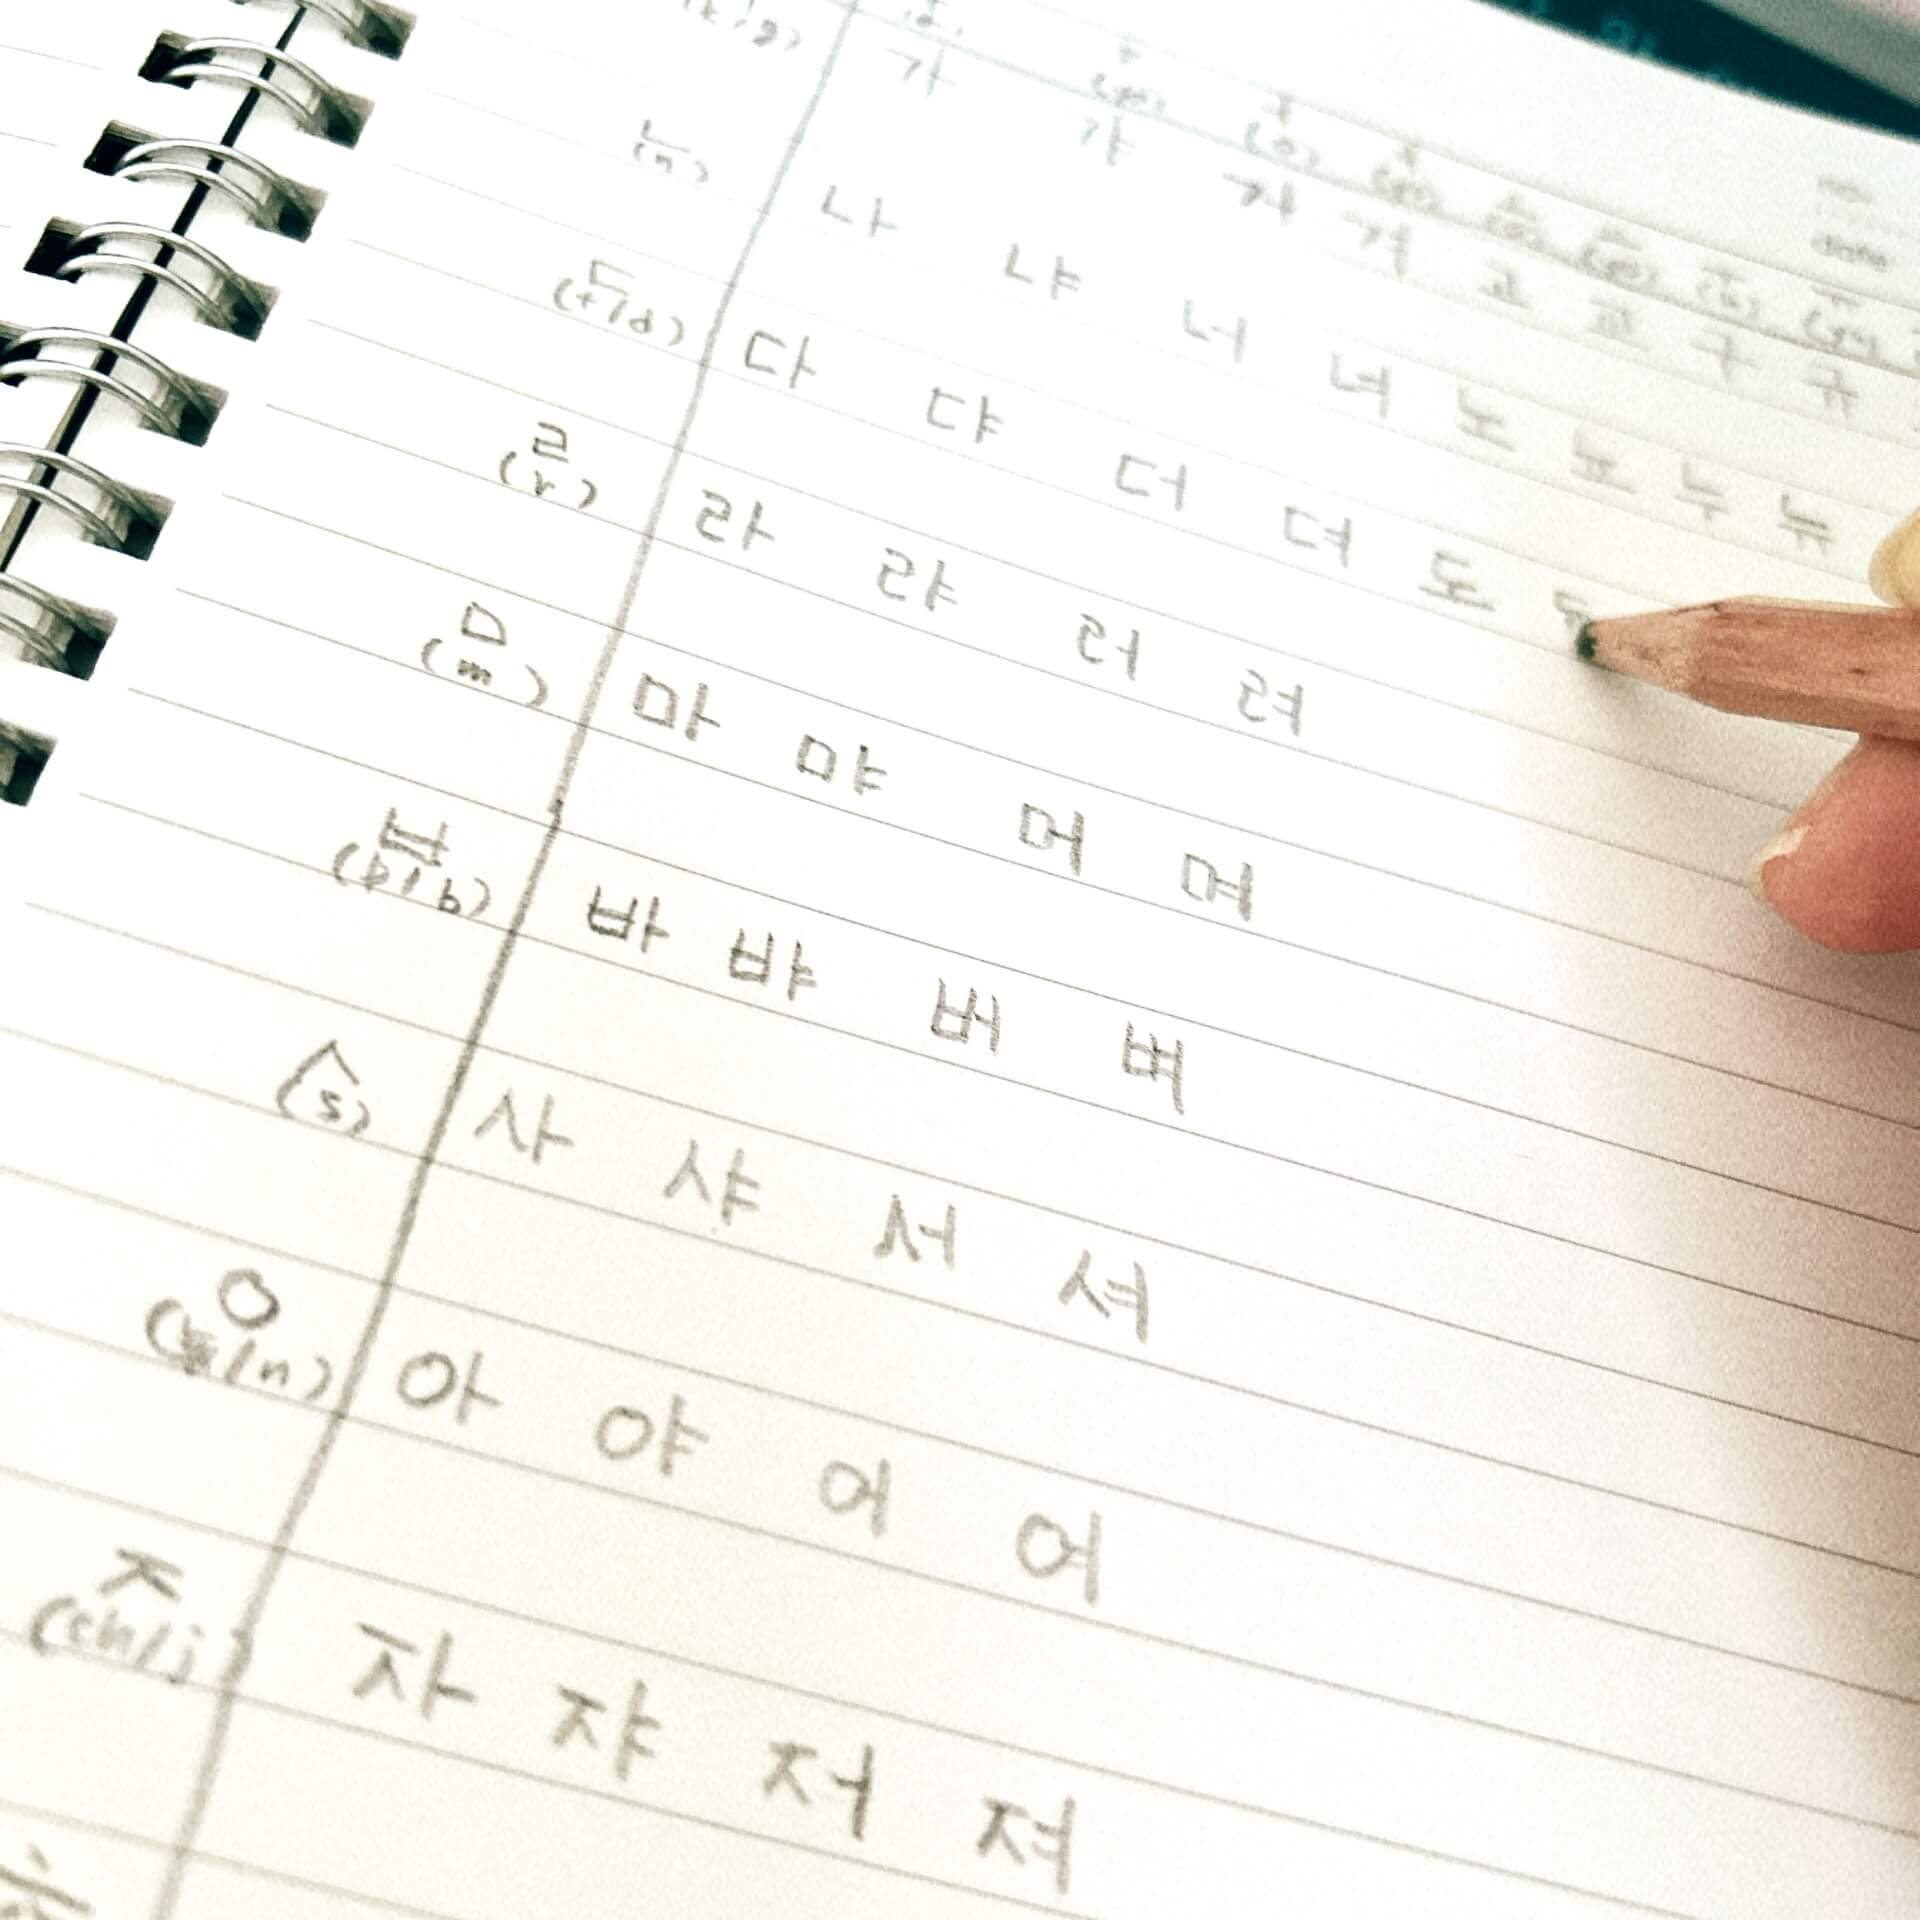 (k/g) 가 갸 거 겨 고 교 구 규
ㄴ (n) 나 냐 너 녀 노 뇨 누 뉴
ㄷ (t/d) 다 댜 더 뎌 도
ㄹ (r) 라 랴 러 려
ㅁ (m) 마 먀 머 며
ㅂ (p/b) 바 뱌 버 벼
ㅅ (s) 사 샤 서 셔
ㅇ 아 야 어 여
ㅈ (ch/j) 자 쟈 저 져